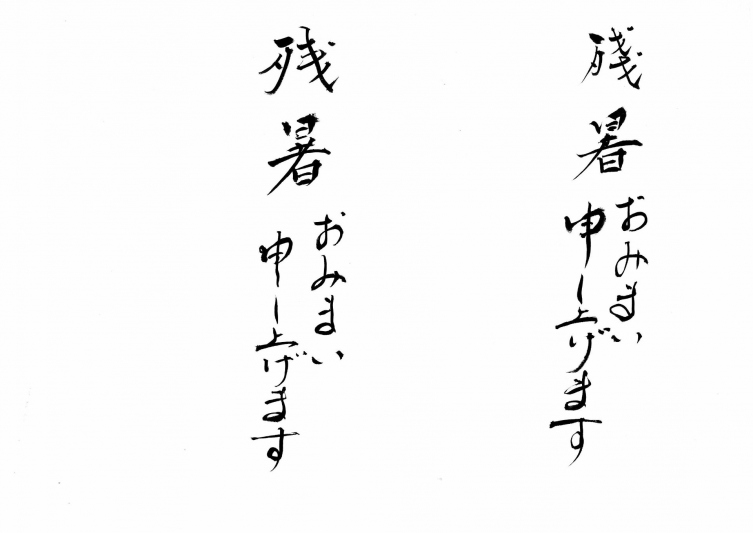 殘暑
おみまい
申し上げます
残暑
おみまい
申し上げます